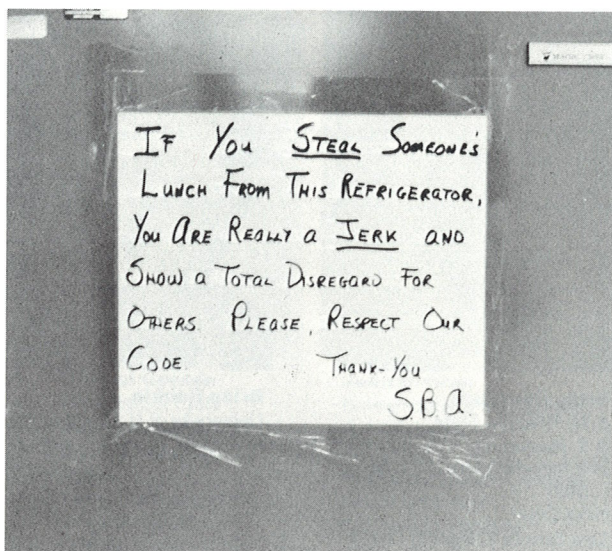 IF YOU STEAL SOMEONE'S
LUNCH FROM THIS REFRIGERATOR,
YOU ARE REALLY A JERK AND
SHOW A TOTAL DISREGARD FOR
OTHERS. PLEASE, RESPECT OUR
CODE. THANK-YOU
S.B.A.